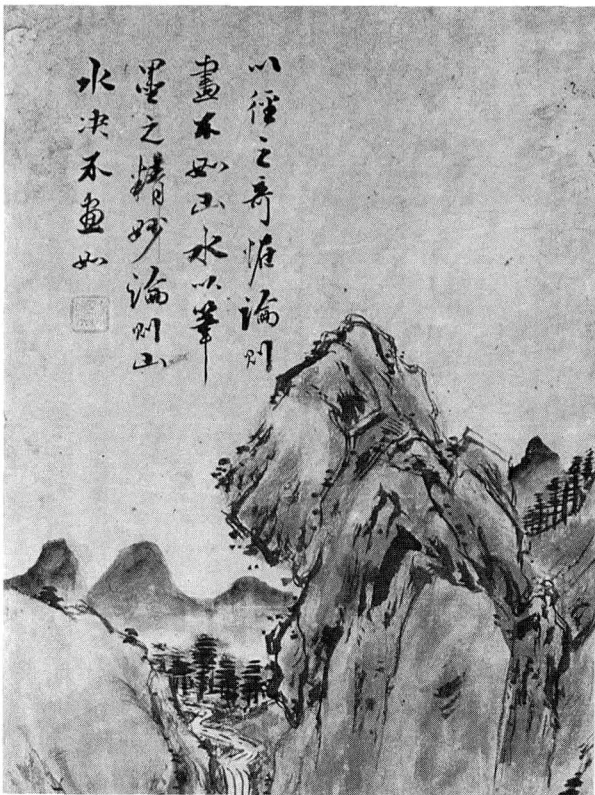 以徑之奇恠論則
畫不如山水以筆
墨之精妙論則山
水决不畫如